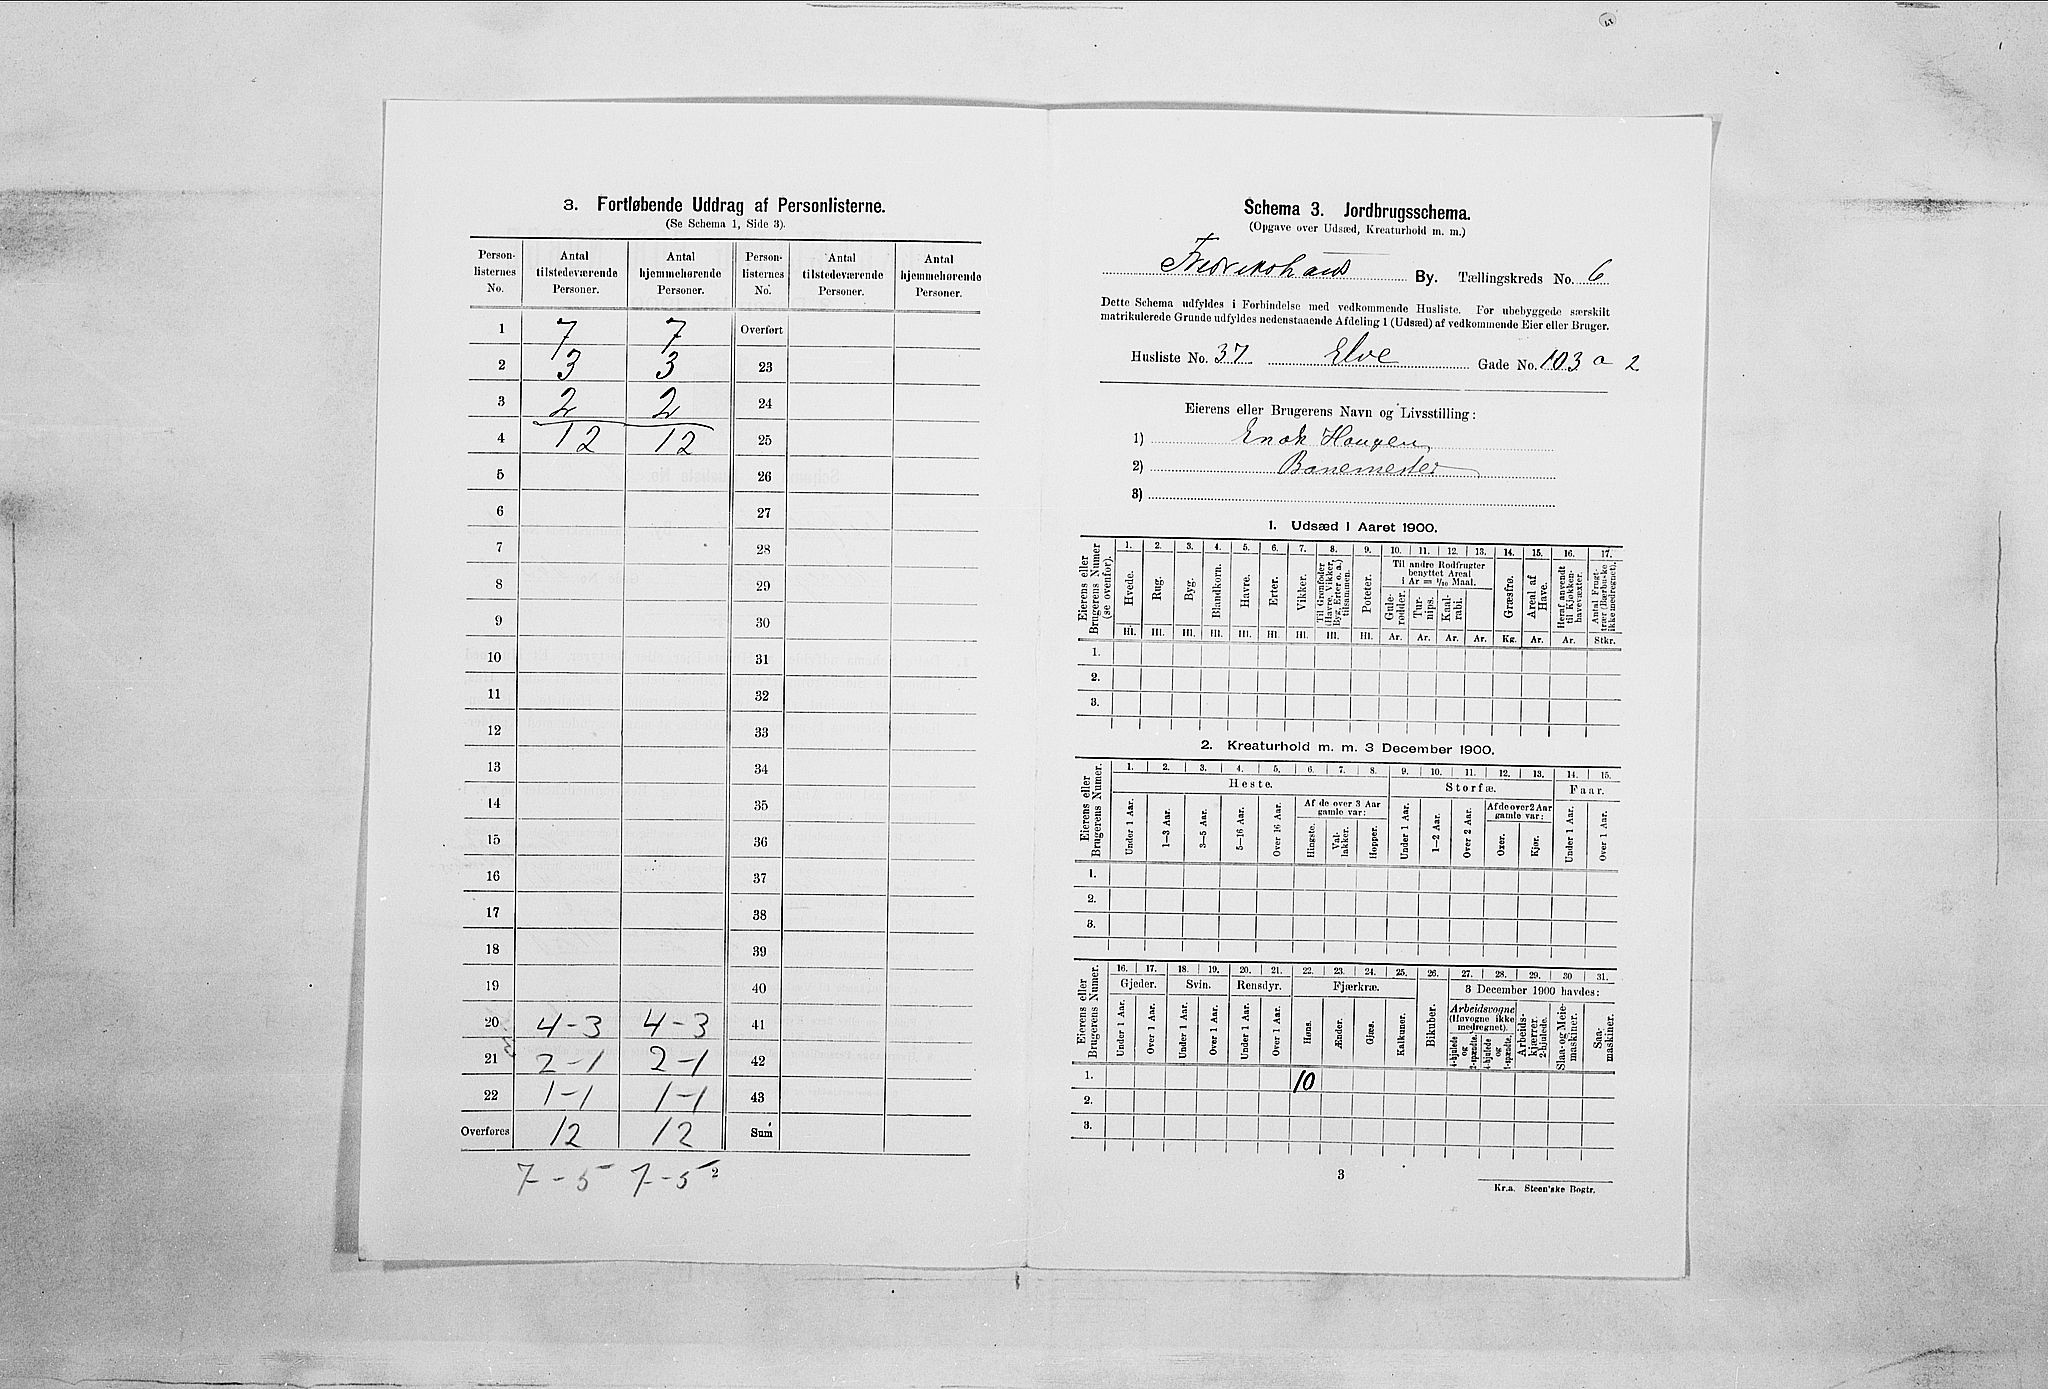 3. Fortløbende Uddrag af Personlisterne.
(Se Schema 1, Side 3).
Person-listernes No. | Antal tilstedeværende Personer. | Antal hjemmehørende Personer. | Person-listernes No. | Antal tilstedeværende Personer. | Antal hjemmehørende Personer.
1 7 7 Overført
2 3 3 23
3 2 2 24
4 12 12 25
5 26
6 27
7 28
8 29
9 30
10 31
11 32
12 33
13 34
14 35
15 36
16 37
17 38
18 39
19 40
20 4-3 4-3 41
21 2-1 2-1 42
22 1-1 1-1 43
Overføres 12 12 Sum
7-5 7-5 2
Schema 3. Jordbrugsschema.
(Opgave over Udsæd, Kreaturhold m. m.)
Fredrikshald By. Tællingskreds No. 6
Dette Schema udfyldes i Forbindelse med vedkommende Husliste. For ubebyggede særskilt
matrikulerede Grunde udfyldes nedenstaaende Afdeling 1 (Udsæd) af vedkommende Eier eller Bruger.
Husliste No. 37 Elve Gade No. 103 a 2
Eierens eller Brugerens Navn og Livsstilling:
1) Enok Haugen,
2) Banemester
3)
1. Udsæd i Aaret 1900.
Eierens eller Brugerens Numer (se ovenfor).
1. 2. 3. 4. 5. 6. 7. 8. 9. 10. 11. 12. 13. 14. 15. 16. 17.
Til andre Rodfrugter benyttet Areal i Ar = 1/10 Maal.
Hvede. Rug. Byg. Blandkorn. Havre. Erter. Vikker. Til Grønfoder (Havre, Vikker, Byg, Erter o. a.) tilsammen. Poteter. Gule-rødder. Tur-nips. Kaal-rabi. Græsfrø. Areal af Have. Heraf anvendt til Kjøkken-havevæxter. Antal Frugt-trær (Bærbuske ikke medregnet).
Hl. Hl. Hl. Hl. Hl. Hl. Hl. Hl. Hl. Ar. Ar. Ar. Ar. Kg. Ar. Ar. Stkr.
1.
2.
3.
2. Kreaturhold m. m. 3 December 1900.
Eierens eller Brugerens Numer.
1. 2. 3. 4. 5. 6. 7. 8. 9. 10. 11. 12. 13. 14. 15.
Heste. Storfæ. Faar.
Af de over 3 Aar gamle var: Af de over 2 Aar gamle var:
Under 1 Aar. 1—3 Aar. 3—5 Aar. 5—16 Aar. Over 16 Aar. Hingste. Val-lakker. Hopper. Under 1 Aar. 1—2 Aar. Over 2 Aar. Oxer. Kjør. Under 1 Aar. Over 1 Aar.
1.
2.
3.
Eierens eller Brugerens Numer.
16. 17. 18. 19. 20. 21. 22. 23. 24. 25. 26. 27. 28. 29. 30 31.
Gjeder. Svin. Rensdyr. Fjærkræ. 3 December 1900 havdes:
Arbeidsvogne (Hovogne ikke medregnet).
Under 1 Aar. Over 1 Aar. Under 1 Aar. Over 1 Aar. Under 1 Aar. Over 1 Aar. Høns. Ænder. Gjæs. Kalkuner. Bikuber. 4-hjulede og 2-spændte. 4-hjulede og 1-spændte. Arbeids-kjærrer, 2-hjulede. Slaa- og Meie-maskiner. Saa-maskiner.
1. 10
2.
3.
3
Kr.a. Steen'ske Bogtr.